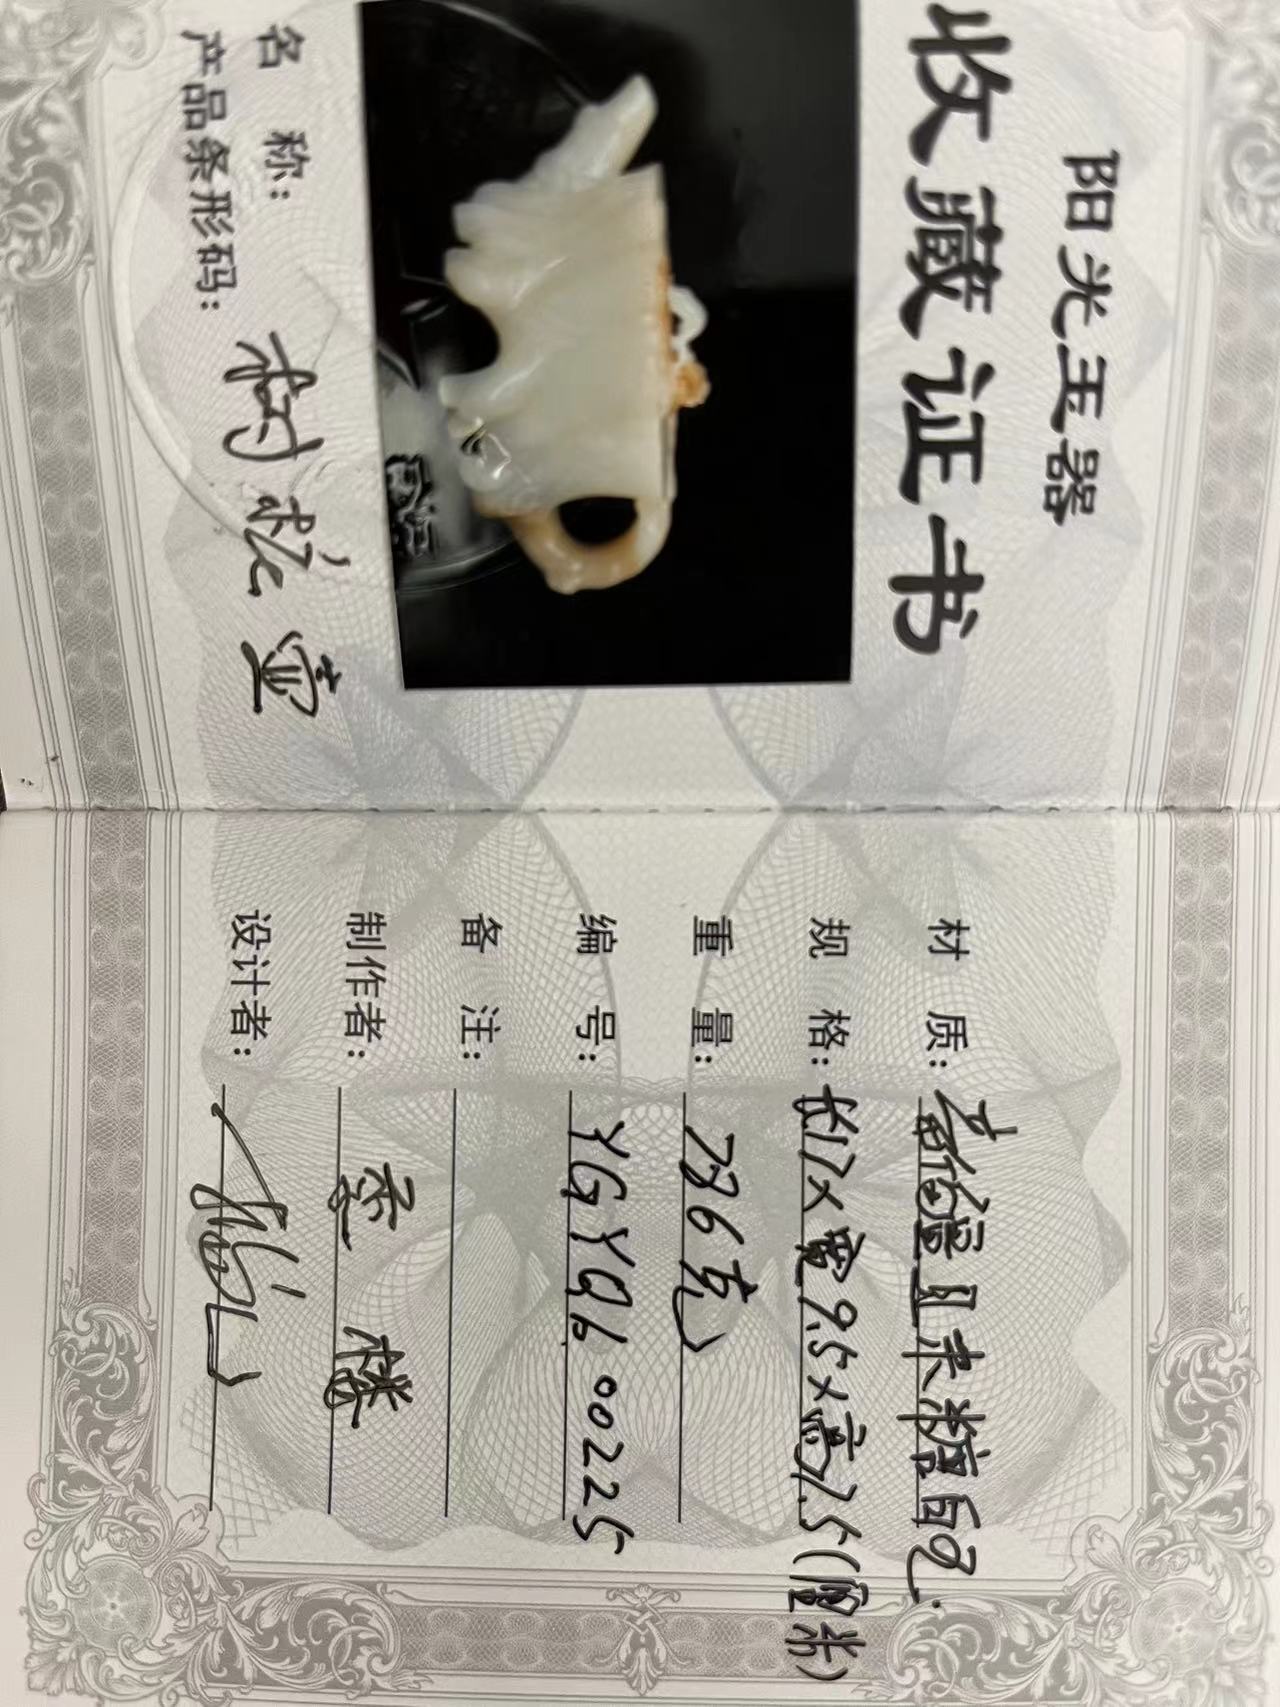 阳光玉器
收藏证书
名称: 树桩壶
产品条形码:
材质:
规格: 长17×宽9.5×高7.5(厘米)
重量: 786克
编号: YGYQb.00225
备注:
制作者:
设计者: